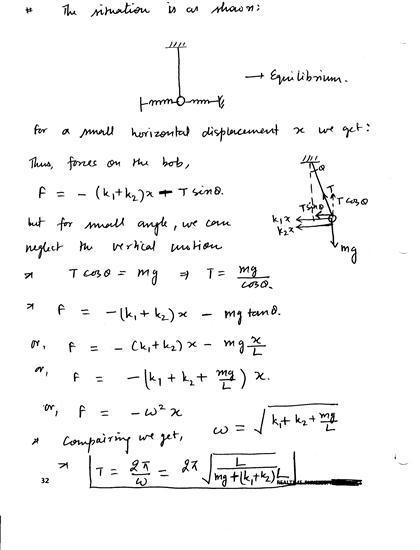 # The situation is as shown:
→ Equilibrium.
for a small horizontal displacement x we get:
Thus, forces on the bob,
F = - (k₁+k₂)x - T sinθ.
but for small angle, we can
neglect the vertical motion
θ
T
T cosθ
T sinθ
k₁x
k₂x
mg
⇒ T cosθ = mg ⇒ T = mg/cosθ.
⇒ F = -(k₁ + k₂)x - mg tanθ.
or, F = - (k₁ + k₂)x - mg x/L
or, F = -(k₁ + k₂ + mg/L) x.
or, F = -ω² x
⇒ Compairing we get, ω = √(k₁ + k₂ + mg/L)
⇒ T = 2π/ω = 2π √(L/(mg+(k₁+k₂)L))
32